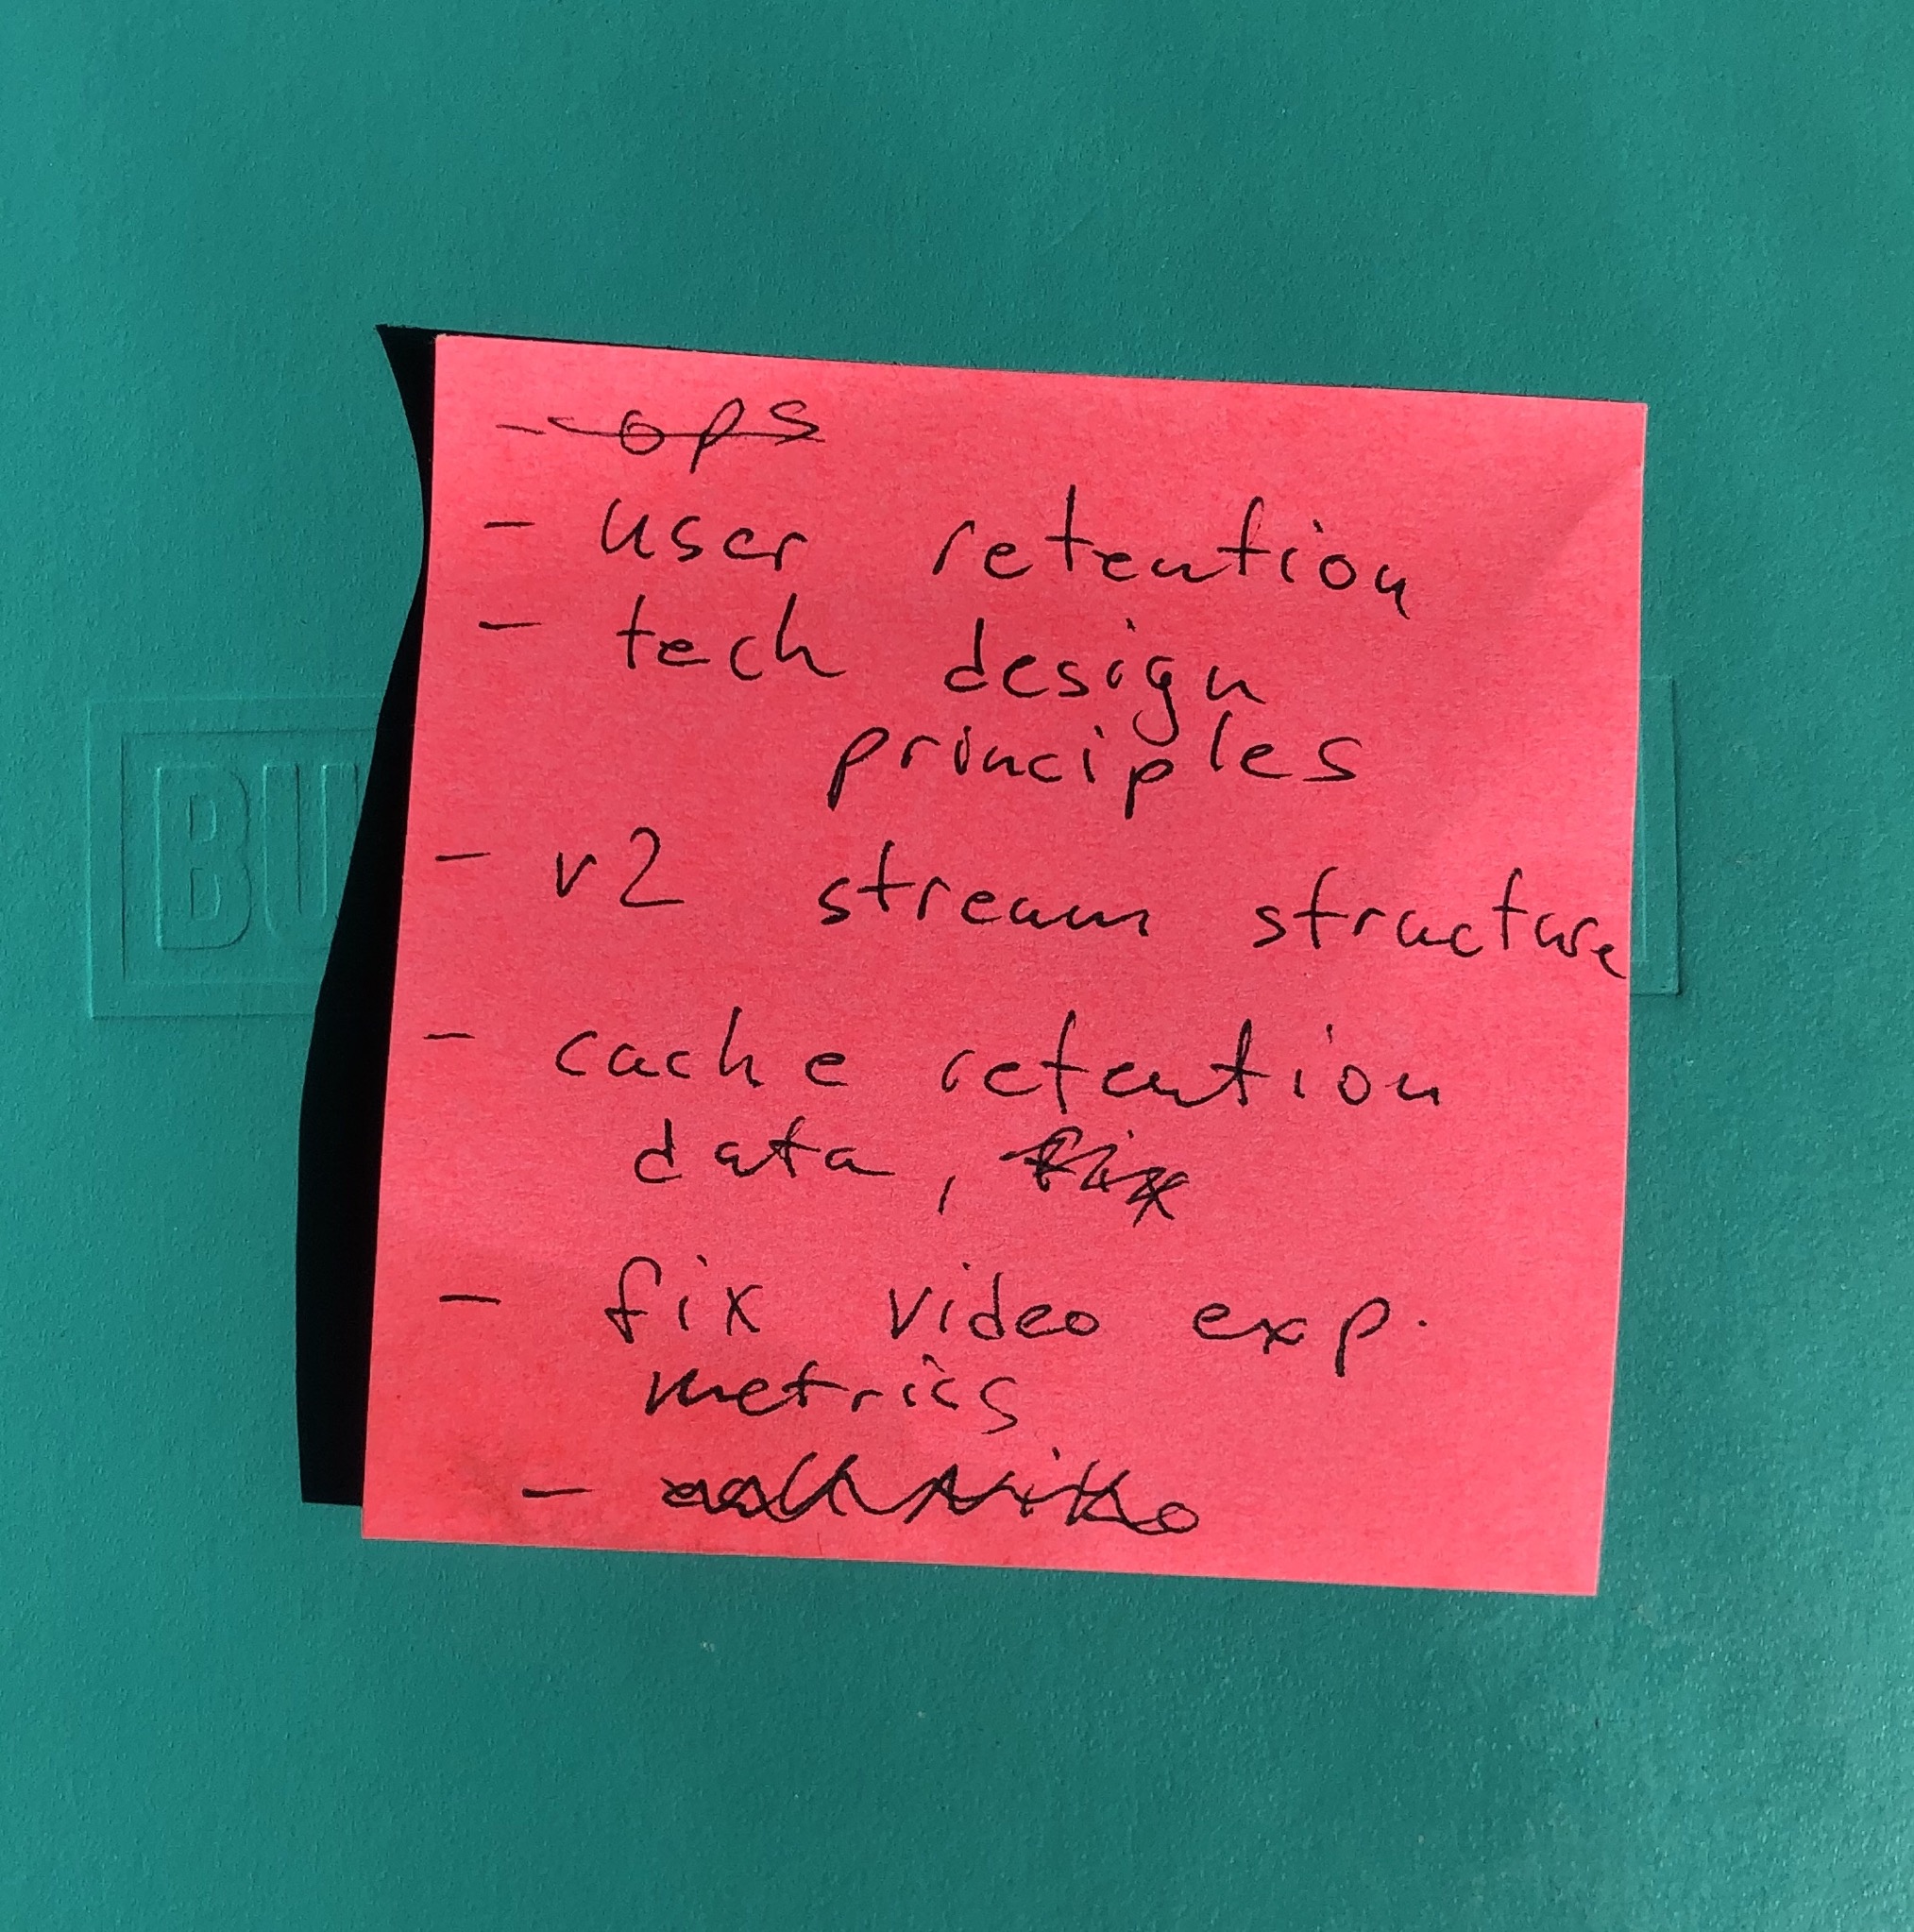 - ops
- user retention
- tech design
principles
- v2 stream structure
- cache retention
data, fix
- fix video exp.
metrics
-
BU